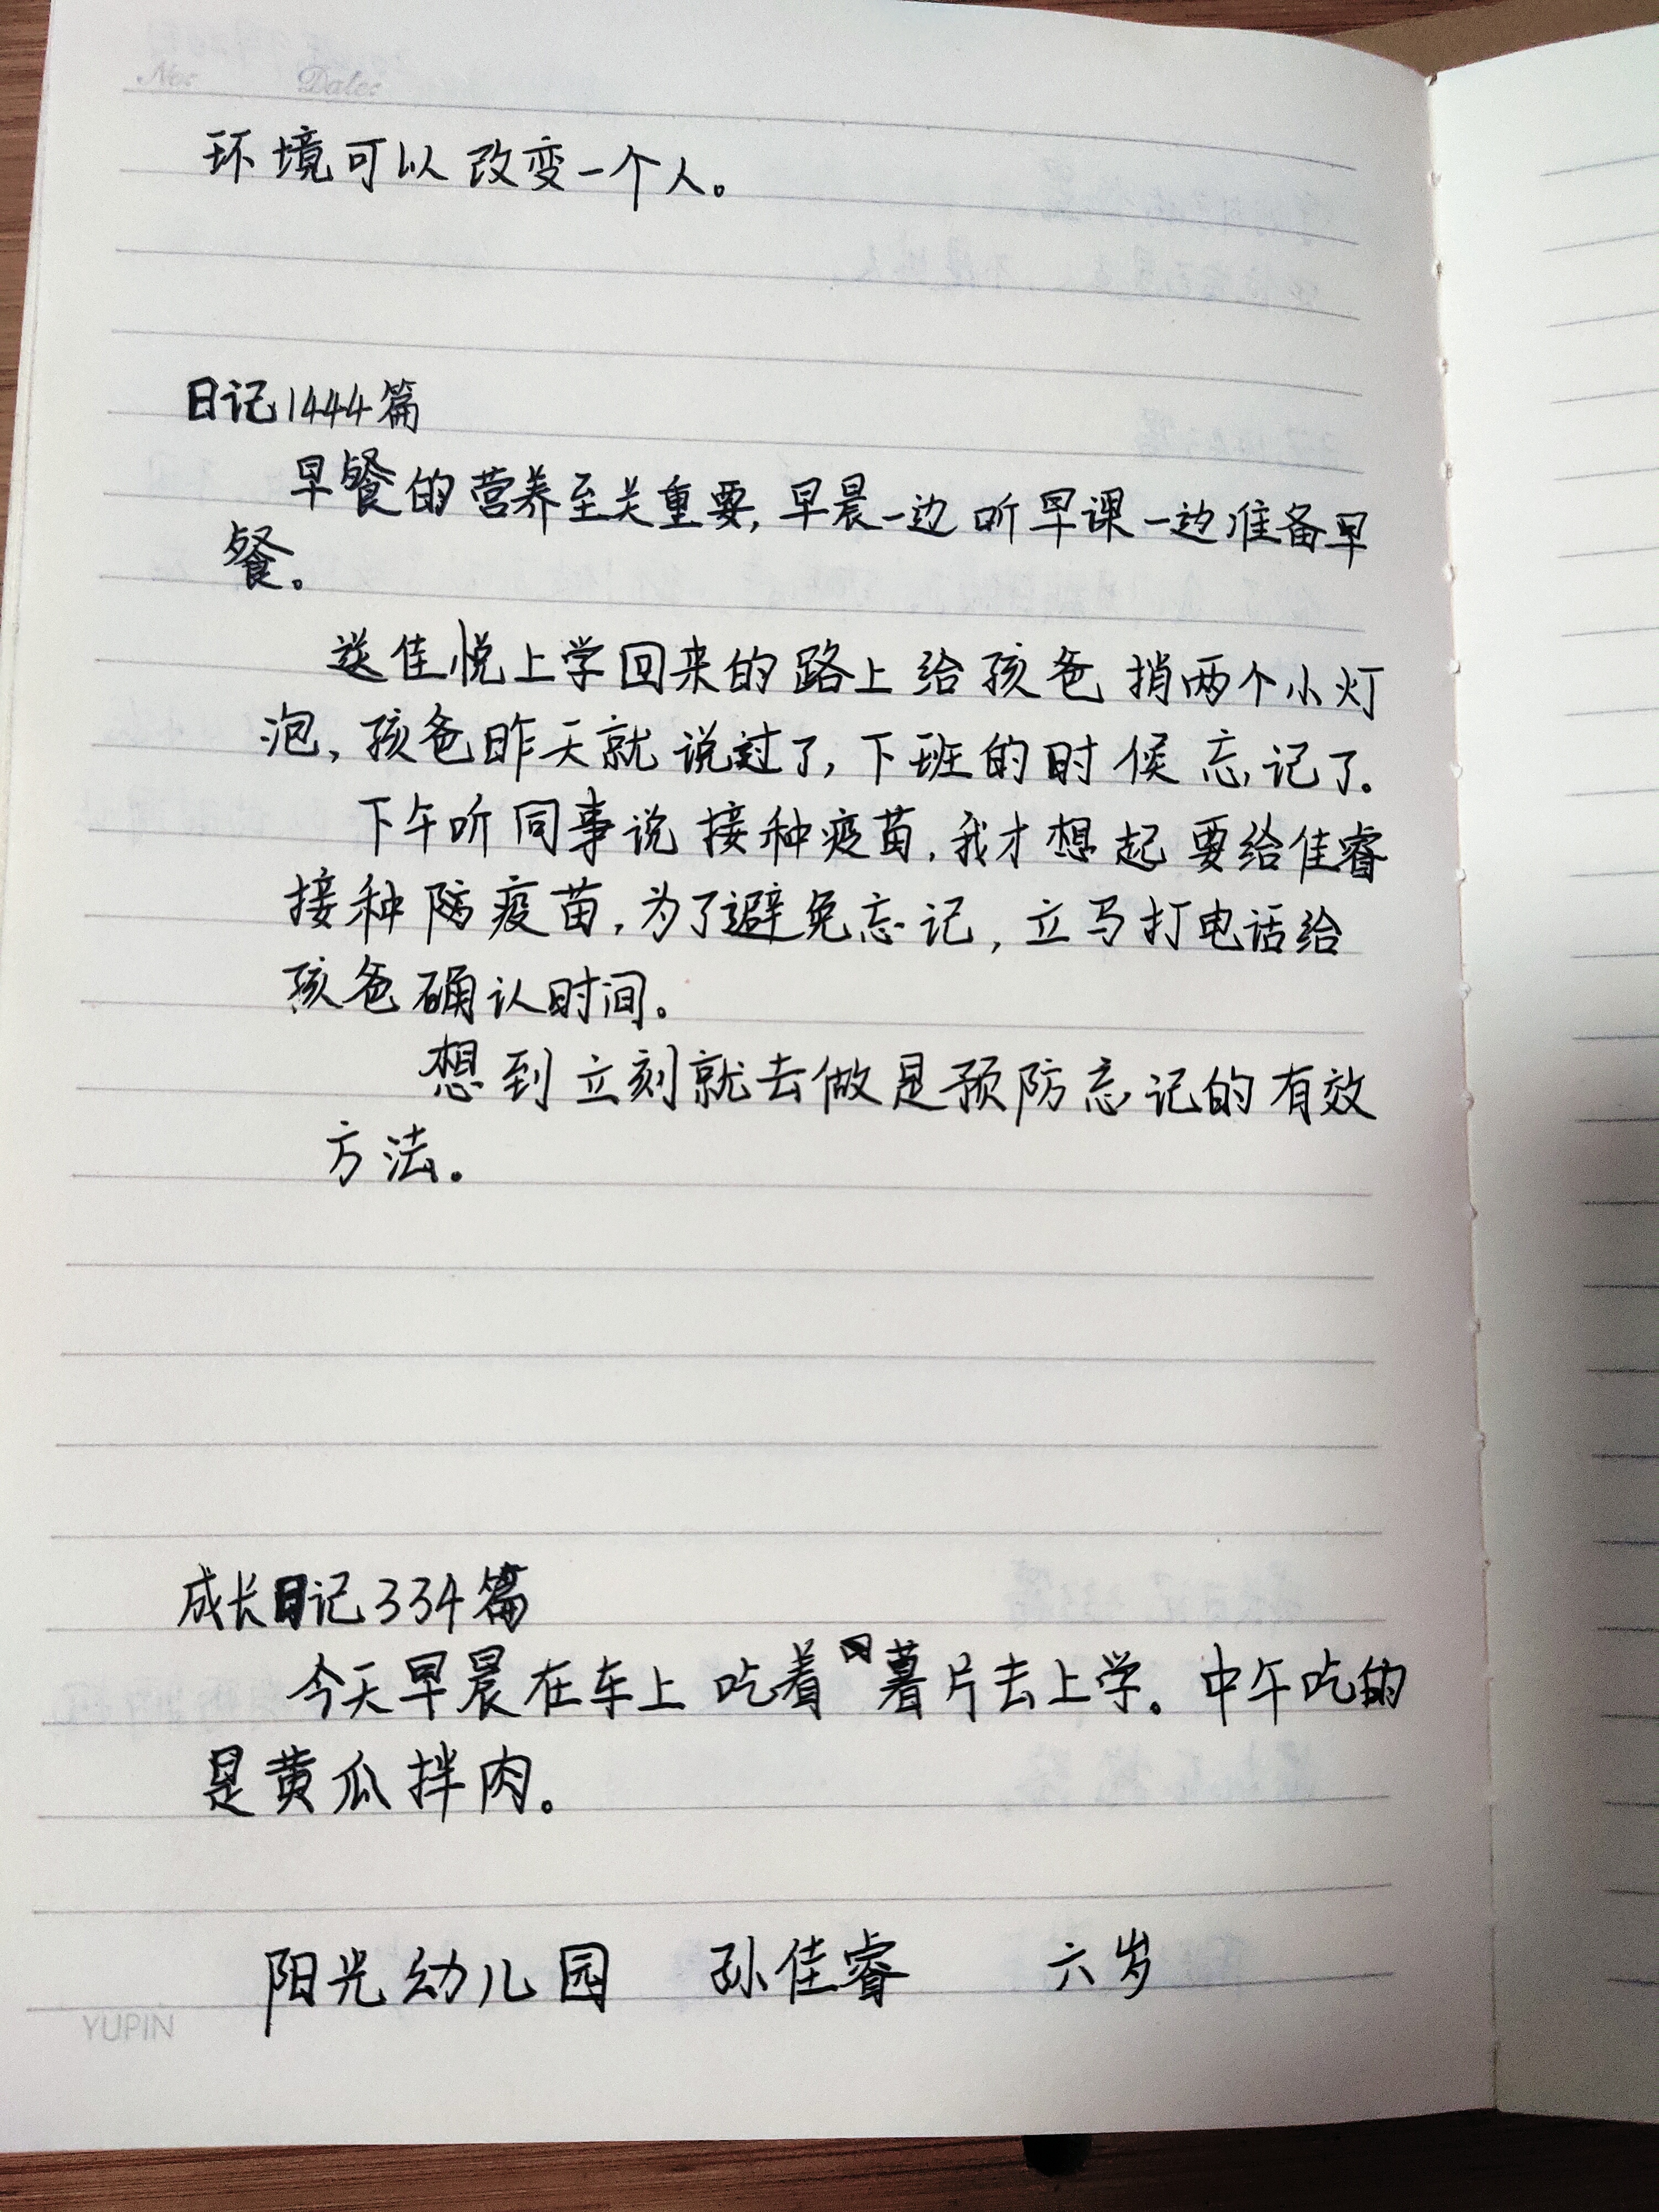 No: Date:
环境可以改变一个人。
日记1444篇
早餐的营养至关重要,早晨一边听早课一边准备早
餐。
送佳悦上学回来的路上给孩爸捎两个小灯
泡,孩爸昨天就说过了,下班的时候忘记了。
下午听同事说接种疫苗,我才想起要给佳睿
接种防疫苗,为了避免忘记,立马打电话给
孩爸确认时间。
想到立刻就去做是预防忘记的有效
方法。
成长日记334篇
今天早晨在车上吃着薯片去上学。中午吃的
是黄瓜拌肉。
阳光幼儿园 孙佳睿 六岁
YUPIN